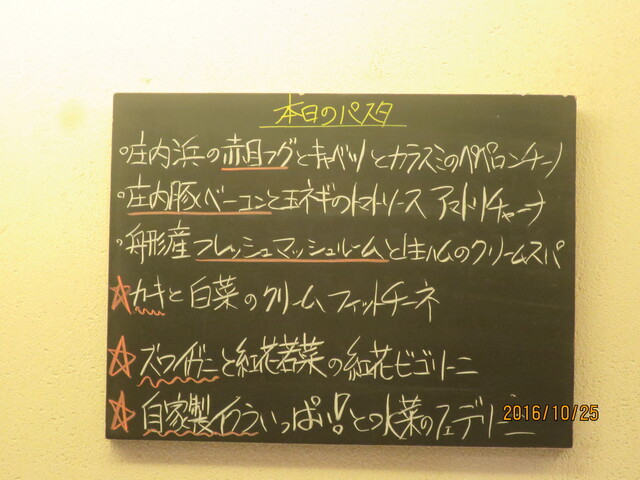 本日のパスタ
◦庄内浜の赤目フグとキャベツとカラスミのペペロンチーノ
◦庄内豚ベーコンと玉ネギのトマトソース アマトリチャーナ
◦舟形産フレッシュマッシュルームと生ハムのクリームスパ
☆カキと白菜のクリームフィットチーネ
☆ズワイガニと紅花若菜の紅花ビゴリーニ
☆自家製イクラいっぱい!!と水菜のフェデリーニ
2016/10/25